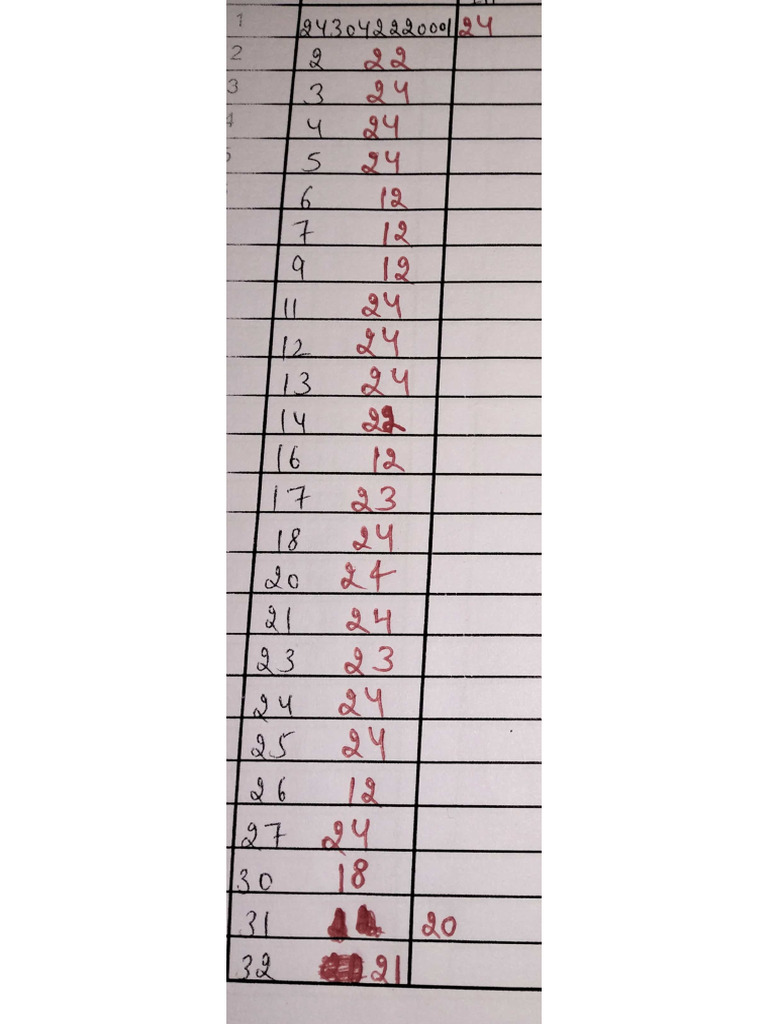 1 243042220001 24
2 2 22
3 3 24
4 4 24
5 5 24
6 12
7 12
9 12
11 24
12 24
13 24
14 22
16 12
17 23
18 24
20 24
21 24
23 23
24 24
25 24
26 12
27 24
30 18
31 20
32 21